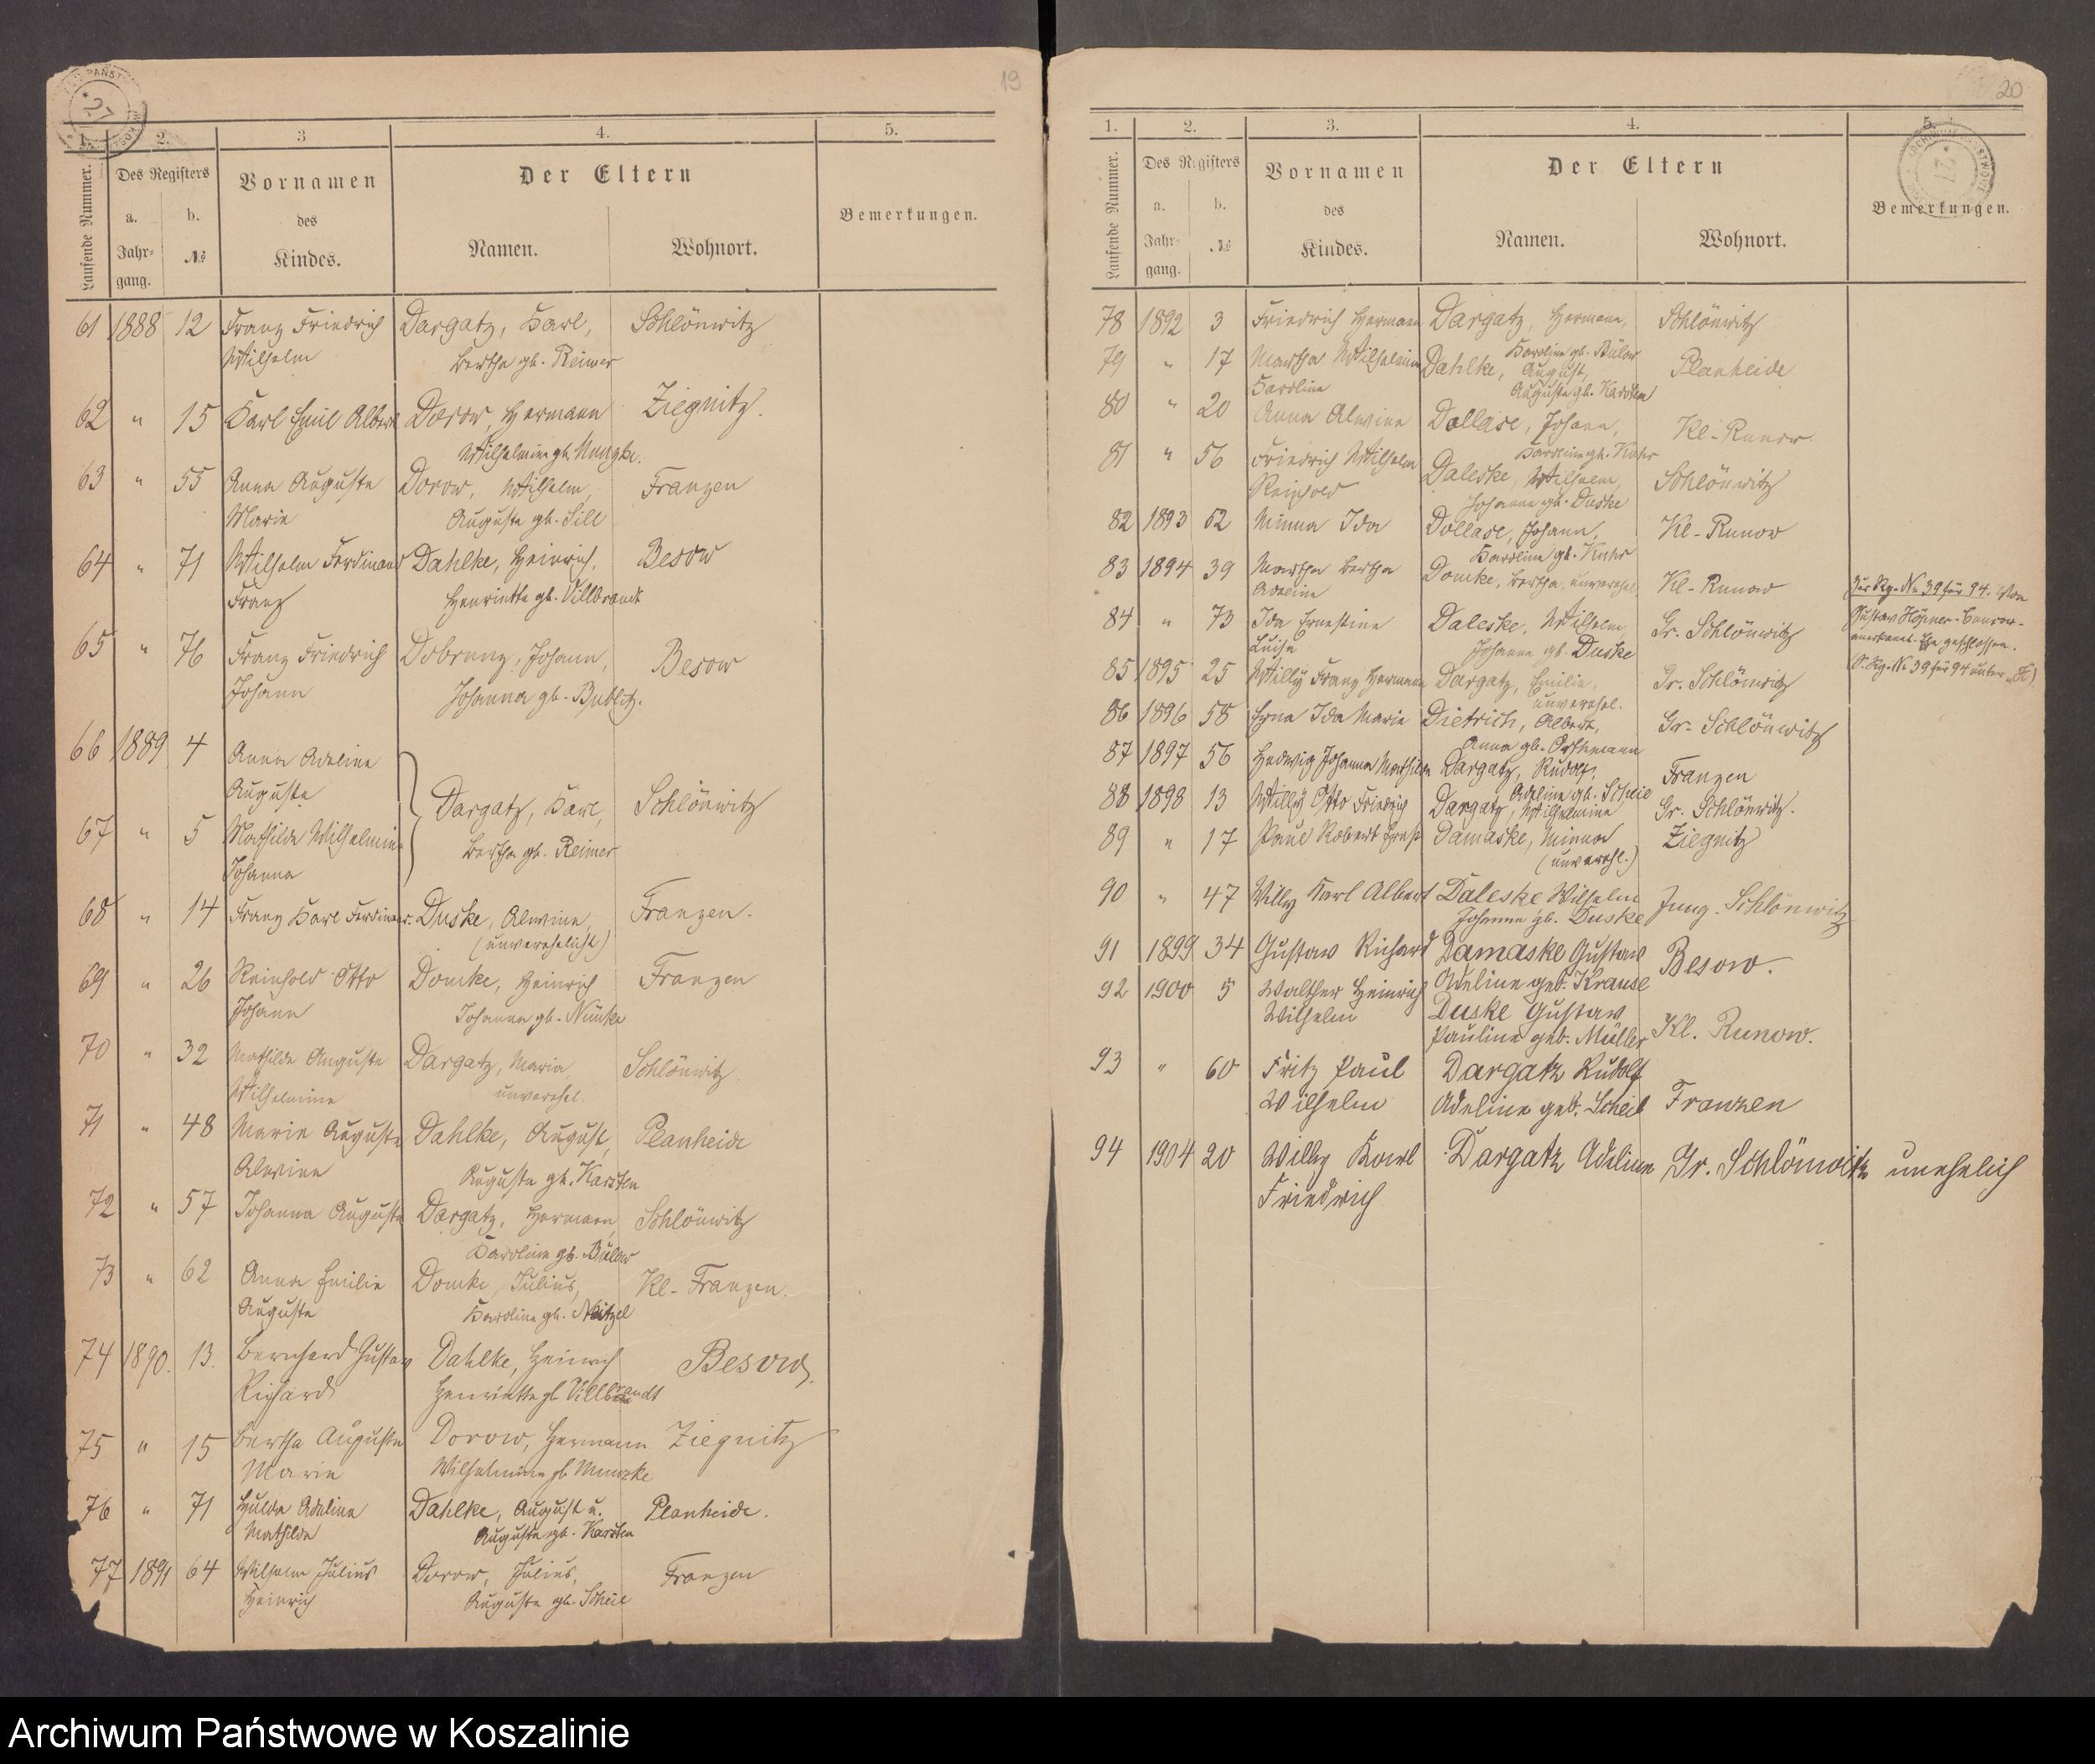 19
1.
2.
3
4.
5.
Laufende Nummer.
Des Registers
a.
Jahr-
gang.
b.
№
Vornamen
des
Kindes.
Der Eltern
Namen.
Wohnort.
Bemerkungen.
61 1888 12 Franz Friedrich Dargatz, Karl, Schlönwitz
Wilhelm Bertha gb. Reimer
62 " 15 Karl Emil Albert Dorow, Hermann Ziegnitz.
Wilhelmine gb.
63 " 55 Anna Auguste Dorow, Wilhelm, Franzen
Marie Auguste gb. Sill
64 " 71 Wilhelm Ferdinand Dahlke, Heinrich, Besow
Franz Henriette gb. Villbrandt
65 " 76 Franz Friedrich Dobrunz, Johann, Besow
Johann Johanna gb. Bublitz.
66 1889 4 Anna Adeline
Auguste
Dargatz, Karl, Schlönwitz
67 " 5 Mathilde Wilhelmine
Bertha gb. Reimer
Johanna
68 " 14 Franz Karl Ferdinand. Duske, Alwine, Franzen.
(unverehelicht)
69 " 26 Reinhold Otto Domke, Heinrich Franzen
Johann Johanna gb.
70 " 32 Mathilde Auguste Dargatz, Maria, Schlönwitz
Wilhelmine unverehel.
71 " 48 Marie Auguste Dahlke, August, Planheide
Alwine Auguste gb. Karsten
72 " 57 Johanna Auguste Dargatz, Hermann, Schlönwitz
Karoline gb. Bülow
73 " 62 Anna Emilie Domke, Julius, Kl-Franzen.
Auguste Karoline gb. Neitzel
74 1890. 13. Bernhard Gustav Dahlke, Heinrich Besow.
Richard Henriette gb Villbrandt
75 " 15 Bertha Auguste Dorow, Hermann Ziegnitz
Marie Wilhelmine gb
76 " 71 Hulda Adeline Dahlke, August u. Planheide.
Mathilde Auguste gb. Karsten
77 1891 64 Wilhelm Julius Dorow, Julius, Franzen
Heinrich Auguste gb. Scheil
20
1.
2.
3.
4.
5.
Laufende Nummer.
Des Registers
a.
Jahr-
gang.
b.
№
Vornamen
des
Kindes.
Der Eltern
Namen.
Wohnort.
Bemerkungen.
78 1892 3 Friedrich Hermann Dargatz, Hermann, Schlönwitz
Karoline gb. Bülow
79 " 17 Martha Wilhelmine Dahlke, August, Planheide
Karoline Auguste gb. Karsten
80 " 20 Anna Alwine Dallase, Johann, Kl-Runow.
Karoline gb. Kuhr
81 " 56 Friedrich Wilhelm Daleske, Wilhelm, Schlönwitz
Reinhold Johanna gb. Duske
82 1893 52 Minna Ida Dollase, Johann, Kl-Runow
Karoline gb. Kuhr
83 1894 39 Martha Bertha Domke, Bertha, unverehel. Kl-Runow
Adeline
Zur Rg. No 39 für 94. Von
Gustav
anerkannt. Ehe geschlossen.
(S. Rg. No 39 für 94 unter "H)
84 " 73 Ida Ernestine Daleske, Wilhelm, Gr. Schlönwitz
Luise Johanna gb. Duske
85 1895 25 Willy Franz Hermann Dargatz, Emilie, Gr. Schlönwitz
unverehel.
86 1896 58 Erna Ida Marie Dietrich, Albert, Gr. Schlönwitz
Anna gb. Orthmann
87 1897 56 Hedwig Johanna Mathilde Dargatz, Rudolf, Franzen
Adeline gb. Scheil
88 1898 13 Willy Otto Friedrich Dargatz, Wilhelmine Gr. Schlönwitz.
89 " 17 Paul Robert Ernst Damaske, Minna Ziegnitz
(unverehl.)
90 " 47 Willy Karl Albert Daleske Wilhelm Jung-Schlönwitz
Johanna gb. Duske
91 1899 34 Gustav Richard Damaske Gustav Besow.
Adeline geb. Krause
92 1900 5 Walther Heinrich Duske Gustav Kl. Runow.
Wilhelm Pauline geb. Müller
93 " 60 Fritz Paul Dargatz Rudolf
Wilhelm Adeline geb. Scheil Franzen
94 1904 20 Willy Karl Dargatz Adeline Gr. Schlönwitz unehelich
Friedrich
Archiwum Państwowe w Koszalinie